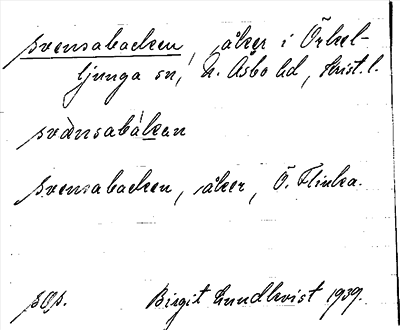 Svensabacken, åker i Örkel-
ljunga sn, N. Åsbo hd, Krist. l.
svänsabákan
Svensabacken, åker, Ö. Flinka.
Birgit Lundkvist 1939.